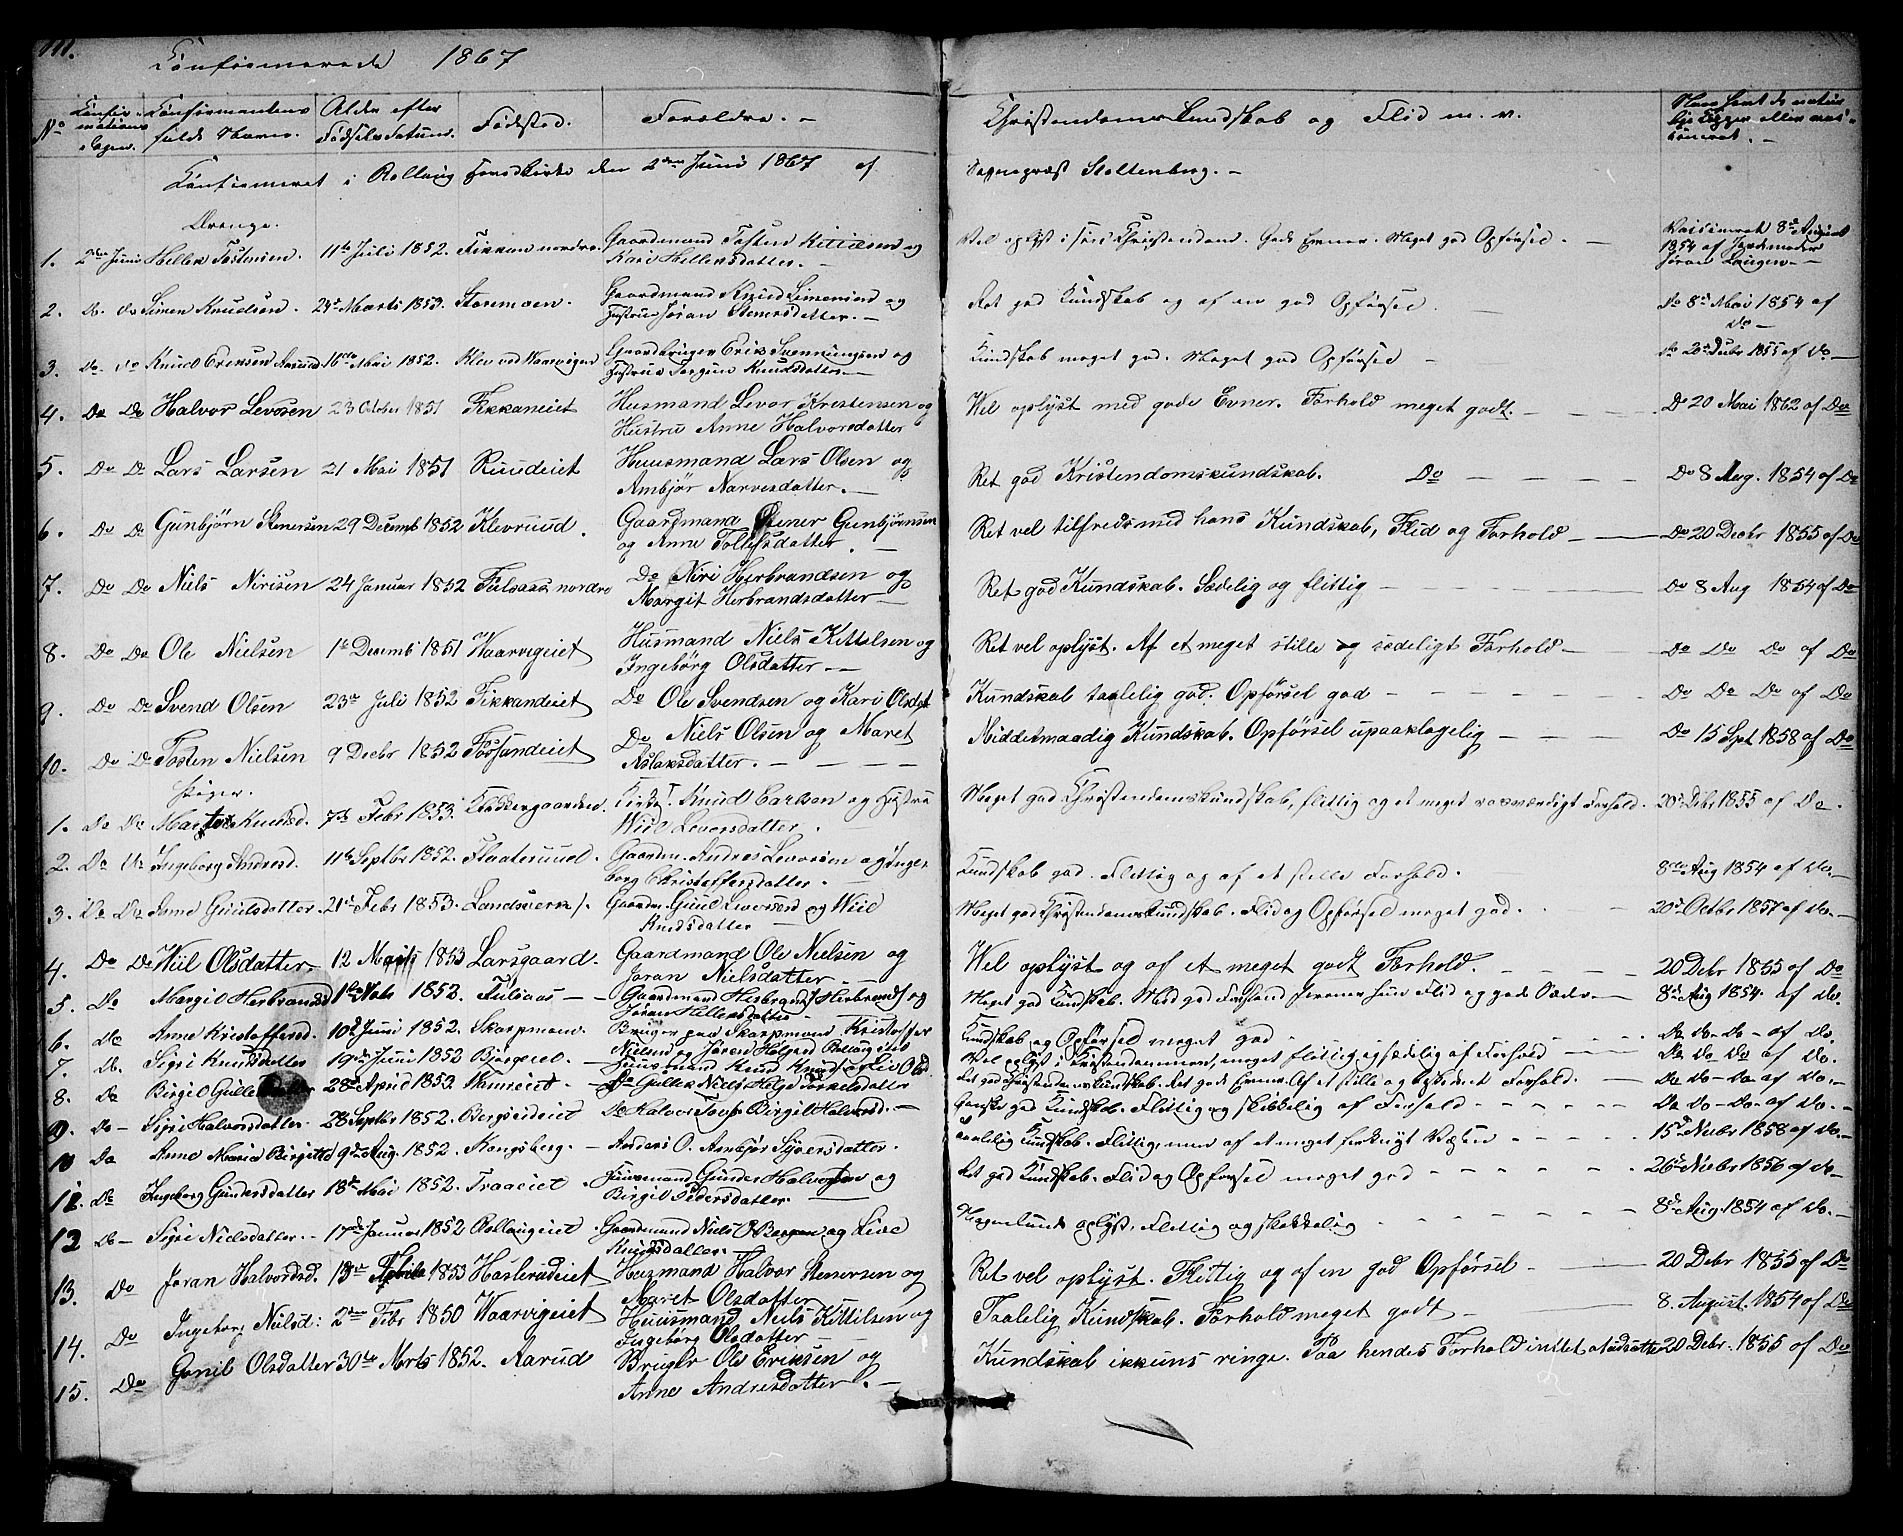 Confirmerede 1867
No
Confirmations Dagen.
Confirmantens fulde Navn.
Alder efter Fødsels Datum.
Fødsted.
Forældre. -
Christendoms Kundskab og Flid m. v.
Naar havt de naturlige Kopper eller vaccineret. -
Confirmeret i Rollaug Hovedkirke den 2den Juni 1867 af Sognepræst Stoltenberg. -
Drenge.
1. 2den Juni Hellek Tostensen. 11te Juli 1852. Fikkan nordre. Gaardmand Tosten Kittilsen og Kari Helleksdatter. - Vel oplyst i sin Christendom. Gode Evner. Meget god Opførsel. - Vaccineret 8de August 1854 af Jordemoder Jøran Laugen -
2. Do Do Simen Knudsen. 24de Marts 1853. Storemoen. Gaardmand Knud Simensen og Hustru Jøran Stenersdatter. - Ret god Kundskab og af en god Opførsel. - Do 8de Mai 1854 af Do -
3. Do Do Knud Eriksen Aarud 16de Mai 1852. Klev ved Waarvigen Gaardbruger Erik Svennungsen og Hustru Jorgun Knudsdatter. - Kundskab meget god. Meget god Opførsel - Do 20de Debr 1855 af Do -
4. Do Do Halvor Levorsen 23 October 1851 Fikkaneiet Husmand Levor Krestensen og Hustru Anne Halvorsdatter Wel oplyst med gode Evner. Forhold meget godt. - - - Do 20 Mai 1862 af Do
5. Do Do Lars Larsen 21 Mai 1851 Ruudeiet Huusmand Lars Olsen og Ambjør Narvesdatter. - Ret god Kristendomskundskab. Do - - - Do 8 Aug. 1854 af Do
6. Do Do Gunbjörn Stenersen 29 Decemb 1852 Klevruud. Gaardmand Stener Gunbjørnsen og Anne Tollefsdatter. - Ret vel tilfreds med hans Kundskab, Flid og Forhold - - Do 20 Decbr 1855 af Do
7. Do Do Niels Nirisen 24 Januar 1852 Fulsaas nordre Do Niri Herbrandsen og Margit Herbrandsdatter - Ret god Kundskab. Sædelig og flittig - - - Do 8 Aug 1854 af Do
8. Do Do Ole Nielsen 1te Decemb 1851 Waarvigeiet Husmand Niels Kittelsen og Ingebörg Olsdatter - - Ret vel oplyst. Af et meget stille og sædeligt Forhold - - Do Do Do af Do
9. Do Do Svend Olsen 23de Juli 1852 Fikkandeiet Do Ole Svendsen og Kari Olsdat Kundskab taalelig god. Opførsel god - - - Do Do Do af Do
10. Do Do Tosten Nielsen 9 Decbr 1852 Fossandeiet Do Niels Olsen og Maret Aslaksdatter. - - - Middelmaadig Kundskab. Opførsel upaaklagelig - - - Do 15 Sept 1858 af Do
Piger.
1. Do Do Marte Knudsd. 7de Febr 1853. Klokkergaarden. Kirkes. Knud Carlsen og Hustru Wiil Levorsdatter. Meget god Christendomskundskab, flittig og et meget rosværdigt Forhold. 20de Debr 1855 af Do.
2. Do Do Ingeborg Andresd. 11te Septbr 1852. Flaateruud. Gaardm. Andres Levorsen og Ingeborg Christoffersdatter. Kundskab god. Flittig og af et stille Forhold. 8de Aug 1854 af Do. -
3. Do Do Anne Guulsdatter. 21de Febr 1853. Landsværk /. Gaardm. Guul Levorsen og Wiil Knudsdatter Meget god Christendomskundskab. Flid og Opførsel meget god. - 20de Octbr 1857 af Do. -
4. Do Do Wiil Olsdatter 12 Marts 1853 Larsgaard. Gaardmand Ole Nielsen og Jøran Nielsdatter - - Wel oplyst og af et meget godt Forhold. - - - - 20 Debr 1855 af Do
5. Do Margit Herbrandsd 1te Novbr 1852. Fulsaas - - Gaardmand Herbrand Herbrands og Jøran Helleksdatter - Meget god Kundskab. Med god Forstand forener hun Flid og gode Sæder. - 8de Aug 1854. af Do.
6. Do Anne Kristoffersd. 10de Juni 1852. Skarpmoen. Bruger paa Skarpmoen Kristoffer Nielsen og Jøren Helgesd Rollaugeiet Kundskab og Opførsel meget god - Do Do - Do - af Do.
7. Do. Sigri Knudsdatter 19de Juni 1852 Bjørgeiet. - Huusmand Knud Knudsen og Liv Olsd. Vel oplyst i Kristendommen, meget flittig og sædelig af Forhold - Do Do Do af Do. -
8. Do Birgit Gulleksdatter 28de April 1852 - Do Gullek Nielss Helge Torkelsdatter Ret god Christendomskundskab. Ret gode Evner. Af et stille og beskedent Forhold. - Do Do - Do. af Do. -
9. Do - Sigri Halvorsdatter. 28 Septbr 1852. Bergerideiet Do Halvor Birgit Halvorsd. - Ganske god Kundskab. Flittig og skikkelig af Forhold - - - Do Do - Do. af Do. -
10 Do Anne Maria Birgitte 9de Aug. 1852. Kongsberg. - Anders O. Ambjør Syversdatter. Taalelig Kundskab. Flittig, men af et meget forknyt Væsen - - - 15de Novbr 1858 af Do. -
11. Do Ingeborg Gundersdatter 18de Mai 1852. Traaeiet. Huusmand Gunder Halvorsen og Birgit Pedersdatter. Ret god Kundskab. Flid og Opførsel meget god - - - 26de Novbr 1856 af Do -
12 Do - Sigri Nielsdatter. - 17de Januar 1852 Rollaugeiet - Gaardmand Niels O Bergan og Live Knudsdatter. Nogenlunde oplyst. Flittig og skikkelig - - - 8de Aug 1854 af Do. -
13. Do Jøran Halvorsd. 13de 1853 Haslerudeiet Husmand Halvor Stenersen og Maret Olsdatter Ret vel oplyst. Flittig og af en god Opførsel - - 20 Debr 1855 af Do
14. Do Ingeborg Nielsd: 2den Febr 1850 Waarvigeiet Huusmand Niels Kittilsen og Ingebörg Olsdatter - - Taalelig Kundskab. Forhold meget godt - 8. August. 1854 af Do
15. Do Gonil Olsdatter 30te Marts 1852. Aarud Bruger Ole Eriksen og Anne Andresdatter. - Kundskab ikkuns ringe. Paa hendes Forhold intet at udsætte 20 Debr. 1855 af Do